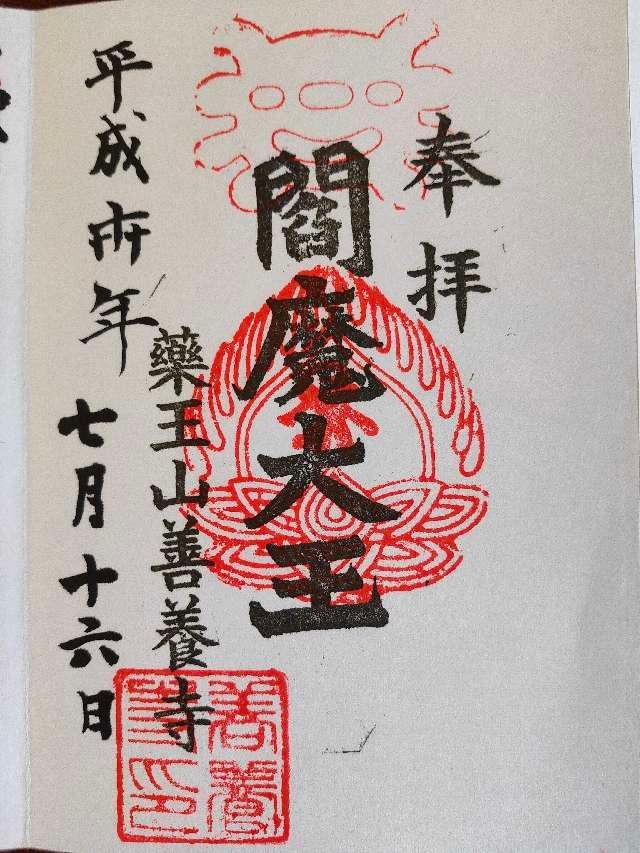 奉拝
閻魔大王
薬王山善養寺
平成卅年七月十六日
善養寺印